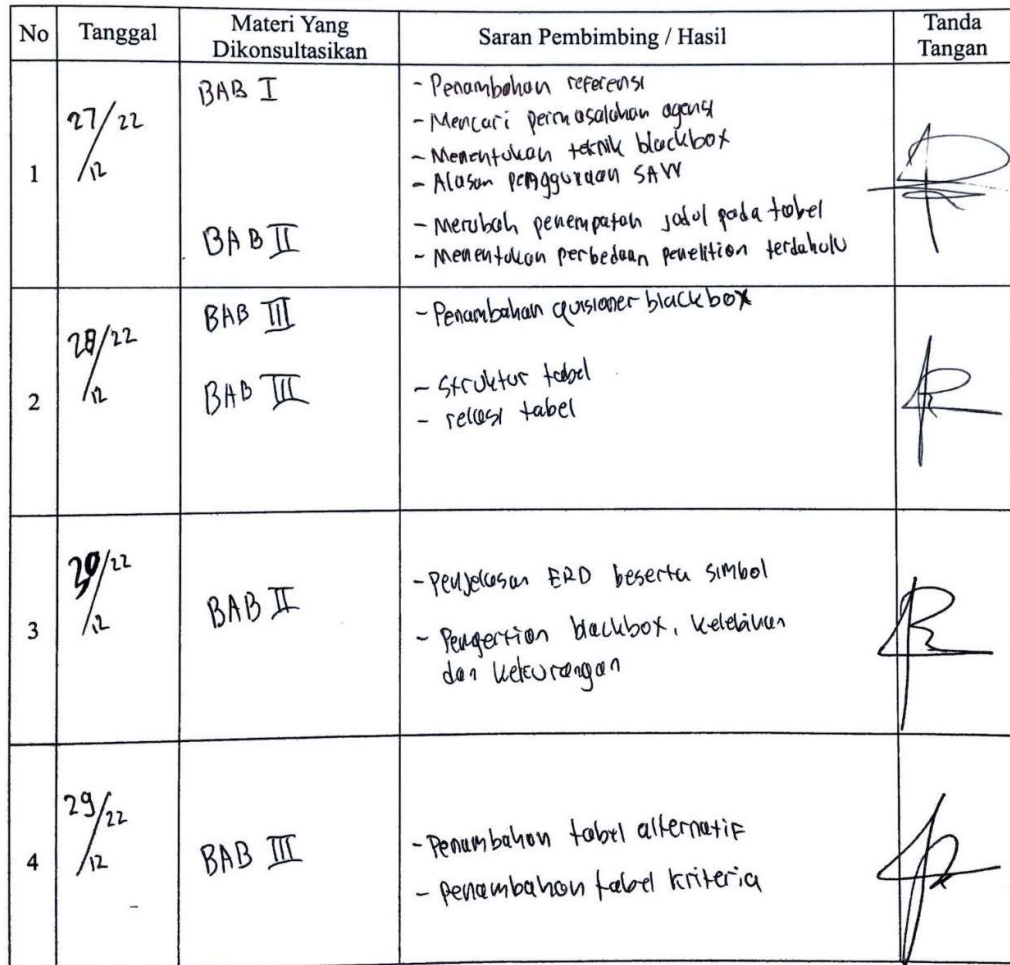 No Tanggal Materi Yang Dikonsultasikan Saran Pembimbing / Hasil Tanda Tangan
1 27/22 /12 BAB I - Penambahan referensi
- Mencari permasalahan agensi
- Menentukan teknik blackbox
- Alasan penggunaan SAW
BAB II - Merubah penempatan judul pada tabel
- Menentukan perbedaan penelitian terdahulu
2 28/22 /12 BAB III - Penambahan quisioner blackbox
BAB III - Struktur tabel
- relasi tabel
3 /22 /12 BAB II - Penjelasan ERD beserta simbol
- Pengertian blackbox, kelebihan
dan kekurangan
4 29/22 /12 BAB III - Penambahan tabel alternatif
- Penambahan tabel kriteria